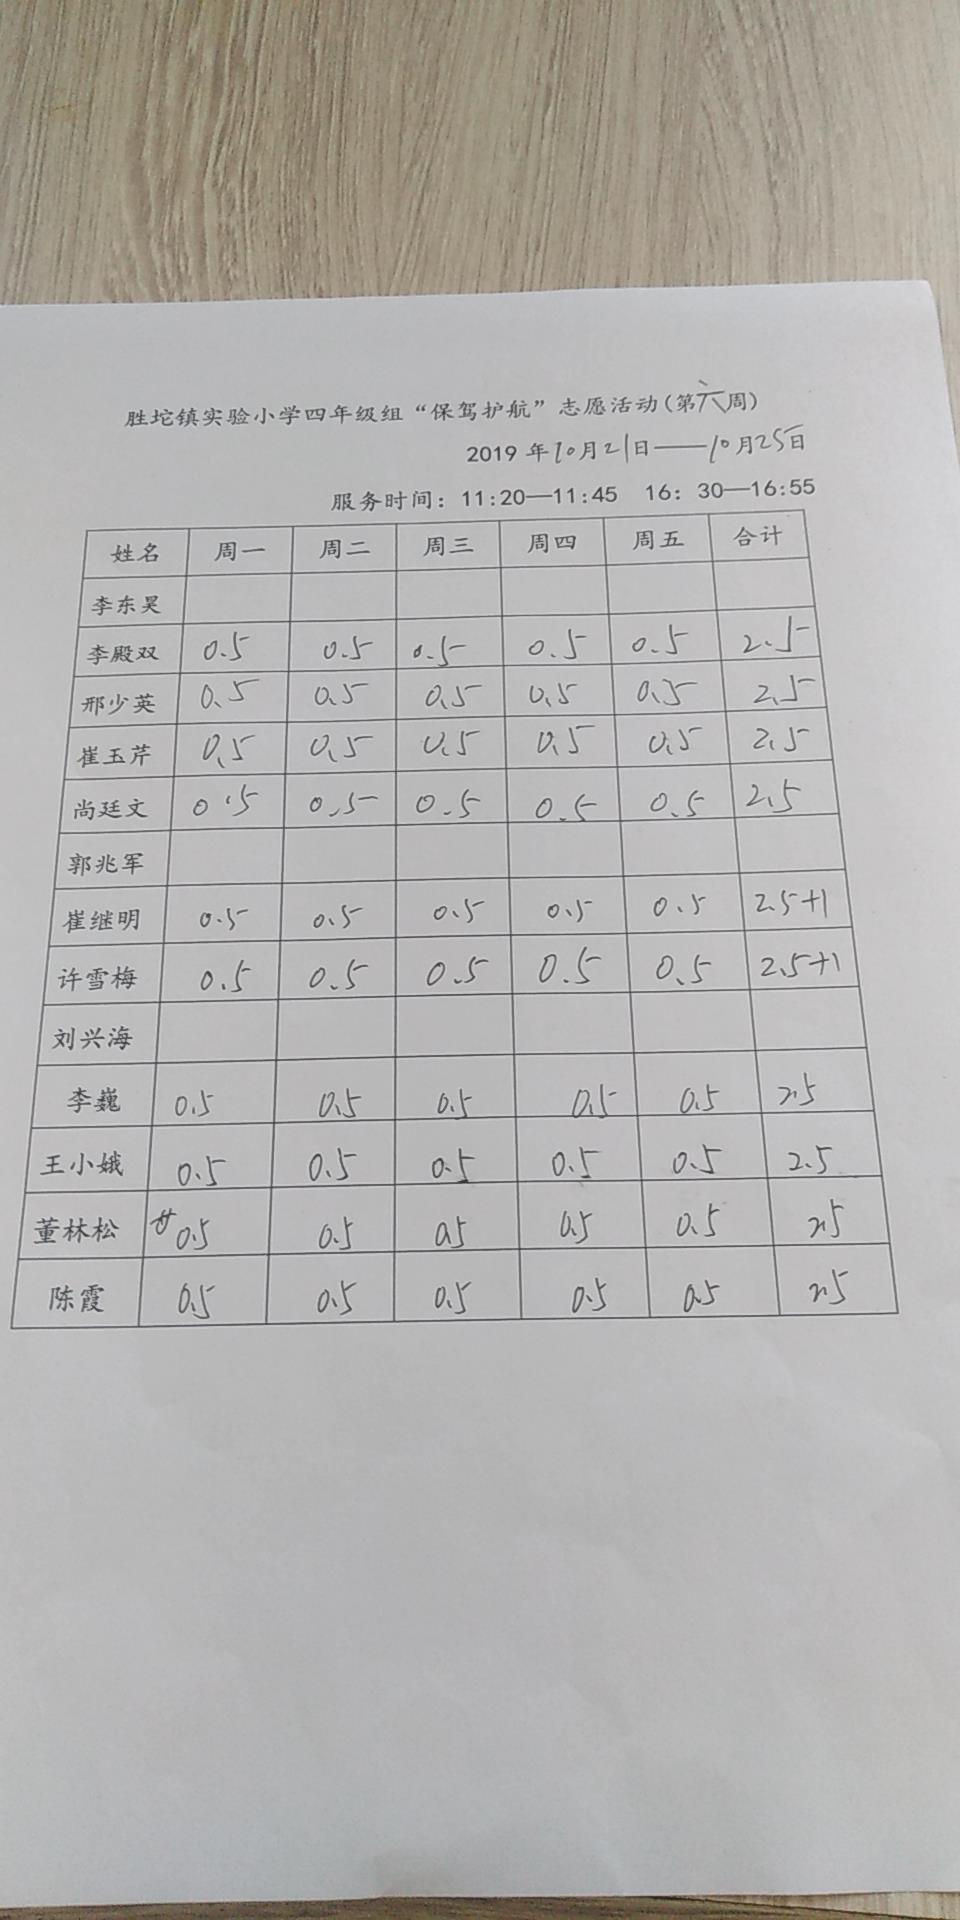 胜坨镇实验小学四年级组“保驾护航”志愿活动(第六周)
2019 年10月21日——10月25日
服务时间：11:20—11:45 16：30—16:55
姓名 周一 周二 周三 周四 周五 合计
李东昊
李殿双 0.5 0.5 0.5 0.5 0.5 2.5
邢少英 0.5 0.5 0.5 0.5 0.5 2.5
崔玉芹 0.5 0.5 0.5 0.5 0.5 2.5
尚廷文 0.5 0.5 0.5 0.5 0.5 2.5
郭兆军
崔继明 0.5 0.5 0.5 0.5 0.5 2.5+1
许雪梅 0.5 0.5 0.5 0.5 0.5 2.5+1
刘兴海
李巍 0.5 0.5 0.5 0.5 0.5 2.5
王小娥 0.5 0.5 0.5 0.5 0.5 2.5
董林松 0.5 0.5 0.5 0.5 0.5 2.5
陈霞 0.5 0.5 0.5 0.5 0.5 2.5